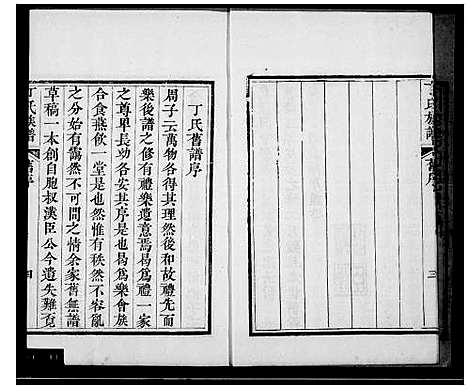 丁氏族譜
舊序
三
丁氏舊譜序
周子云萬物各得其理然後和故禮先而
樂後譜之修有禮樂遺意焉曷為禮一家
之尊卑長幼各安其序是也曷為樂會族
合食燕飲一堂是也然惟有秩然不容亂
之分始有藹然不可間之情余家舊無譜
草稿一本創自胞叔漢臣公今遺失難覓
丁氏族譜
舊序
四